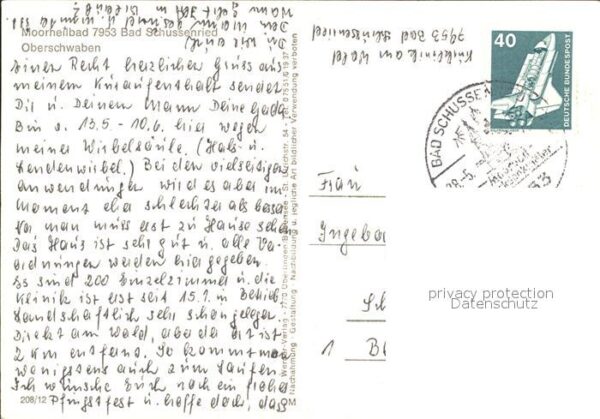 Moorheilbad 7953 Bad Schussenried
Oberschwaben
Einen Recht herzlicher Gruss aus
meinem Kuraufenthalt sendet
Dir u. Deinem Mann Deine Gerda
Bin v. 13.5 - 10.6. hier wegen
meiner Wirbelsäule. (Hals- u.
Lendenwirbel.) Bei den vielseitigen
Anwendungen wird es aber im
Moment eher schlechter als besser
Na man muss erst zu Hause sehen
Das Haus ist sehr gut u. alle Ver
ordnungen werden hier gegeben.
Es sind 200 Einzelzimmer u. die
Klinik ist erst seit 15.1. in Betrieb.
Landschaftlich sehr schön gelegen.
Direkt am Wald, aber der Ort ist
2 km entfernt. So kommt man
wenigstens auch zum Laufen.
Ich wünsche Euch noch ein frohes
Pfingstfest u. hoffe doch, dass
208/12
Kurklinik am Wald
7953 Bad Schussenried
40
DEUTSCHE BUNDESPOST
BAD SCHUSSEN
Frau
Ingebo
Sch
1 B
privacy protection
Datenschutz